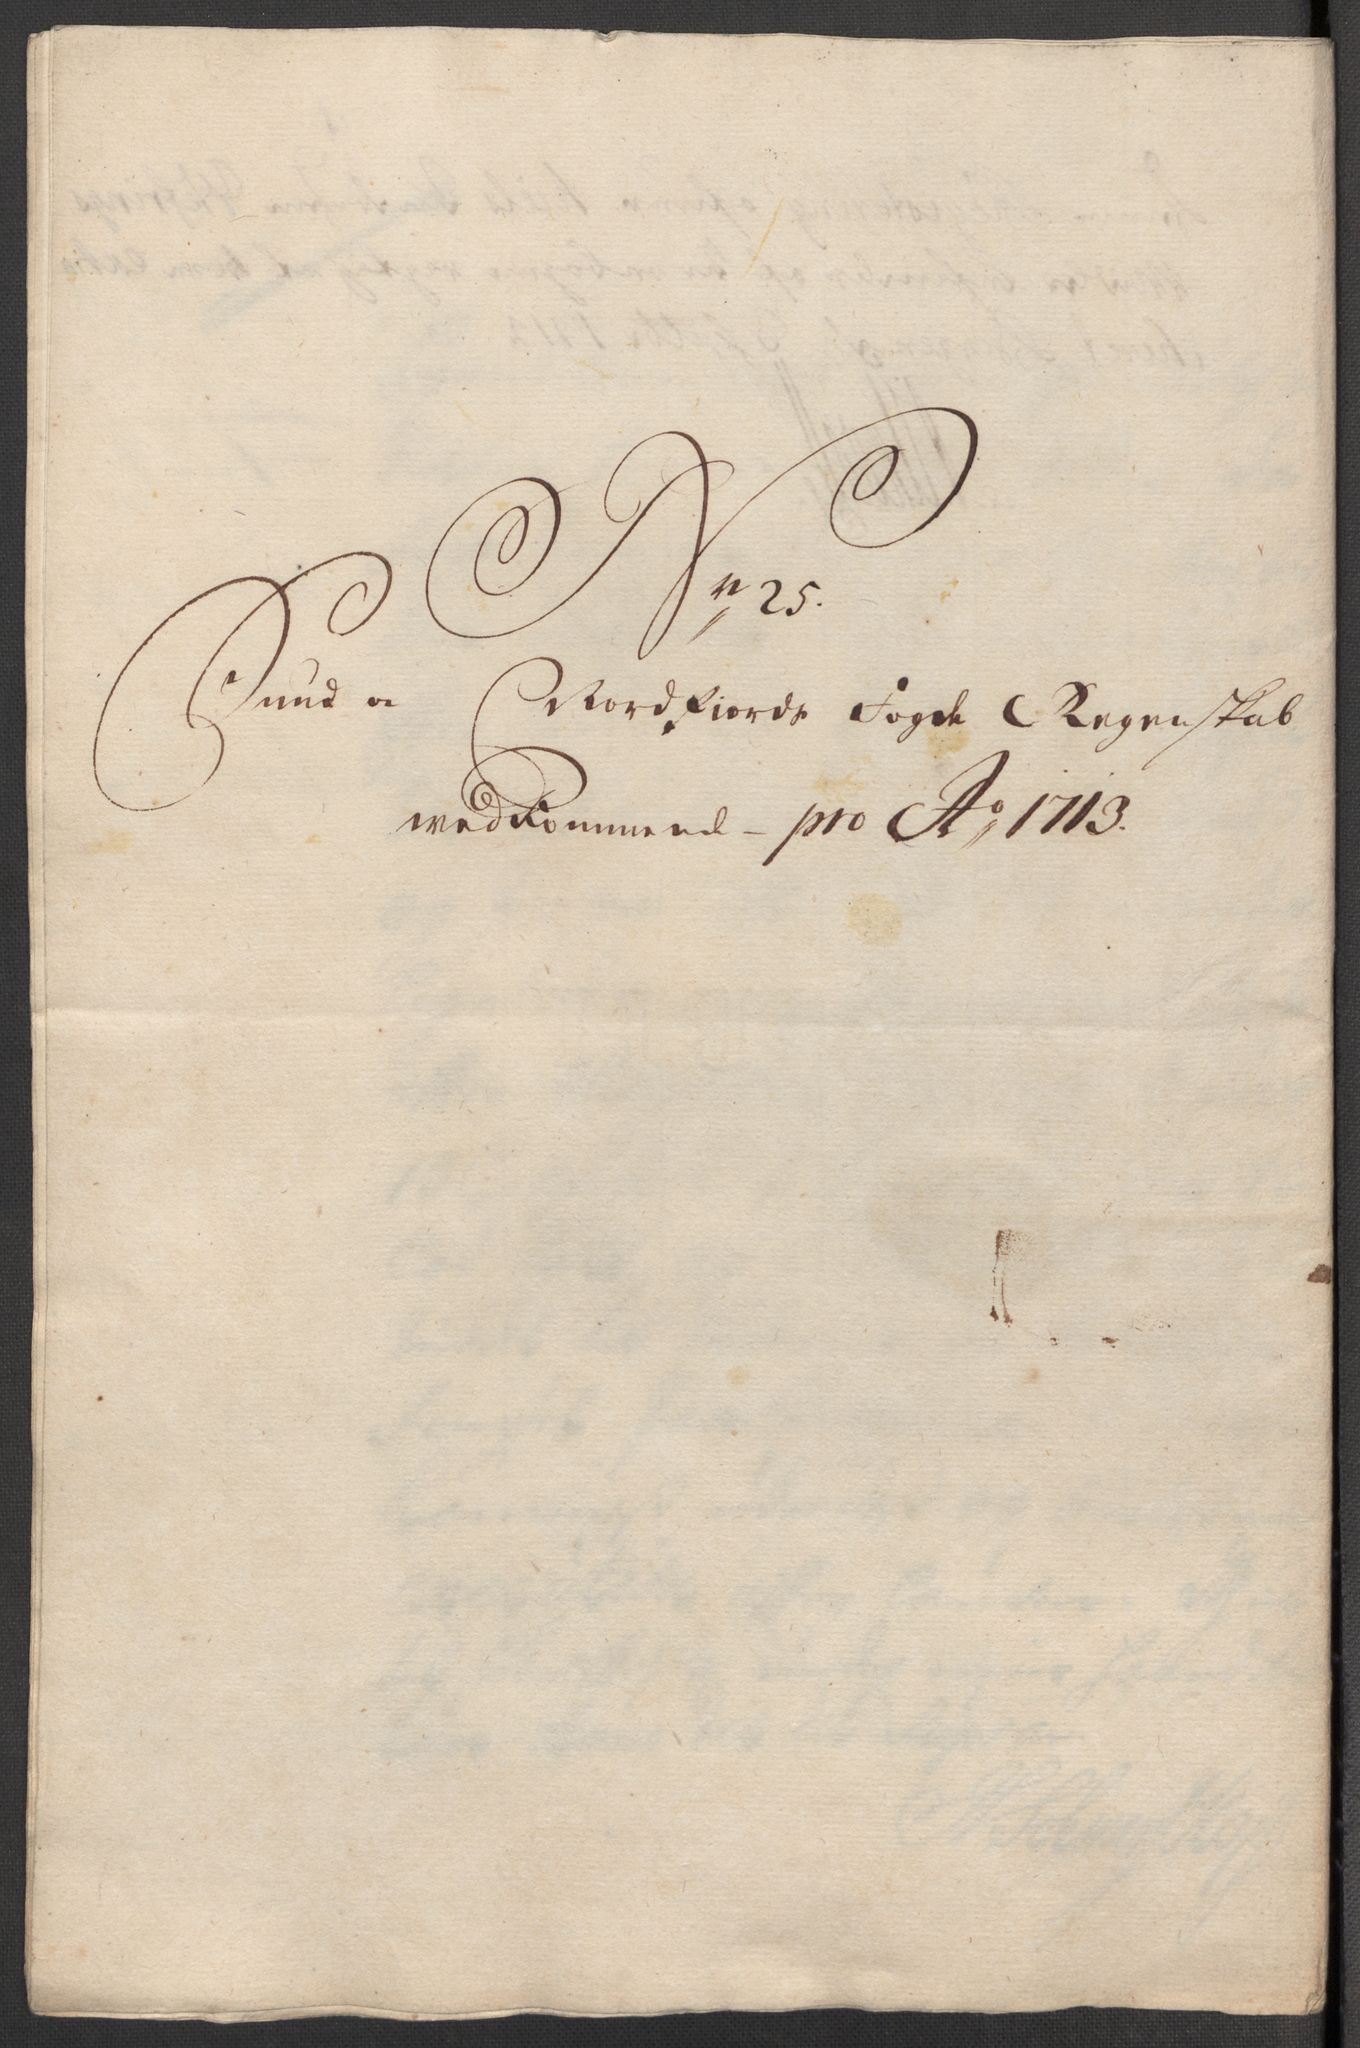 No 25.
Sund og Nordfiords Fogde Regenskab
vedkommende – pro Ao 1713.